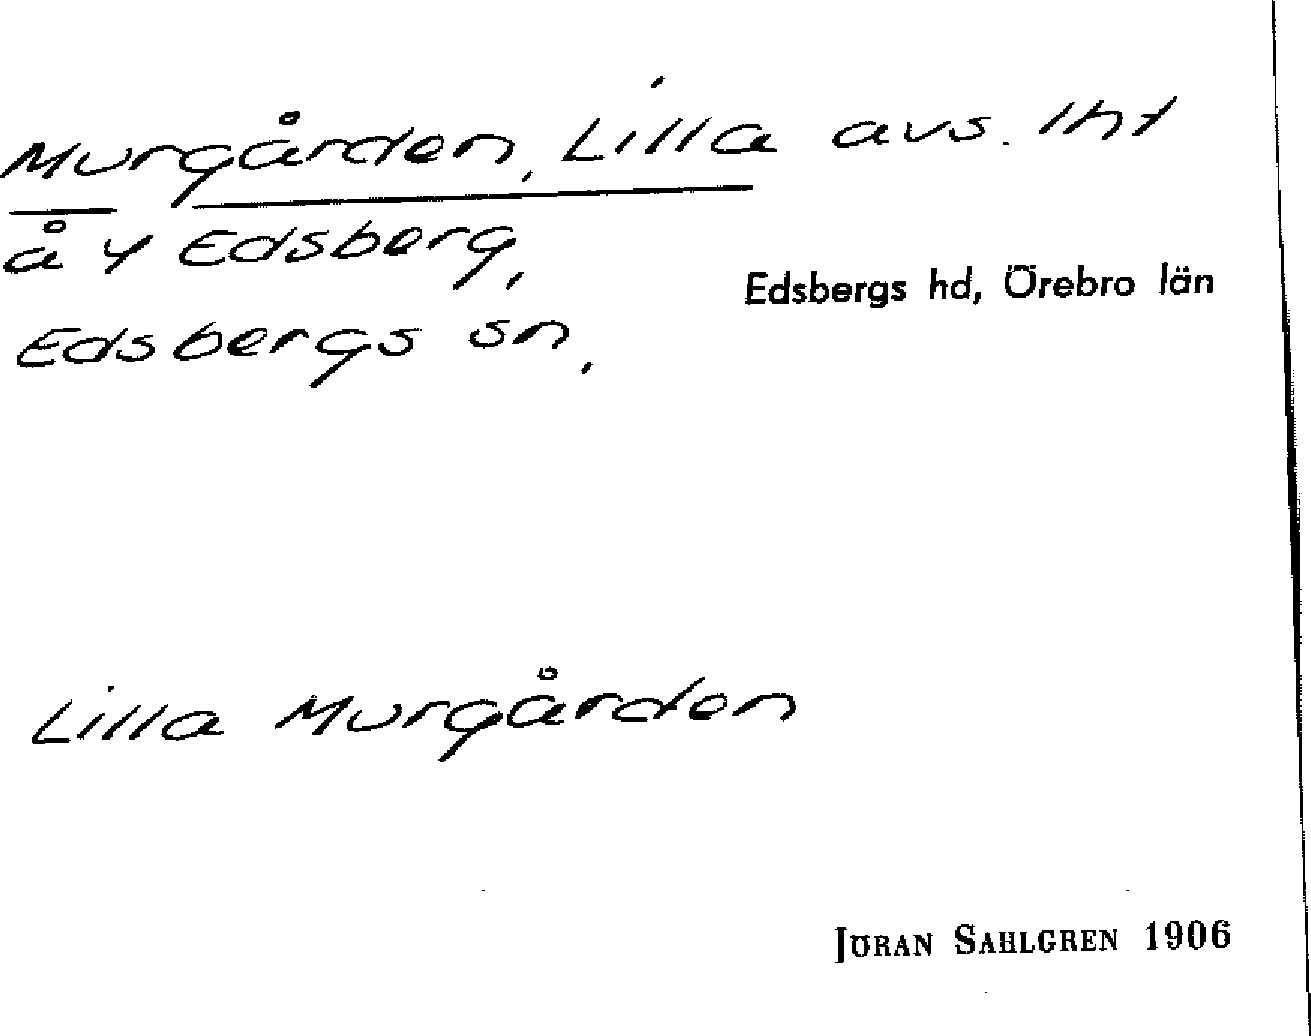 Murgården, Lilla avs. lht
å y Edsberg,
Edsbergs sn,
Edsbergs hd, Örebro län
Lilla Murgården
JÖRAN SAHLGREN 1906